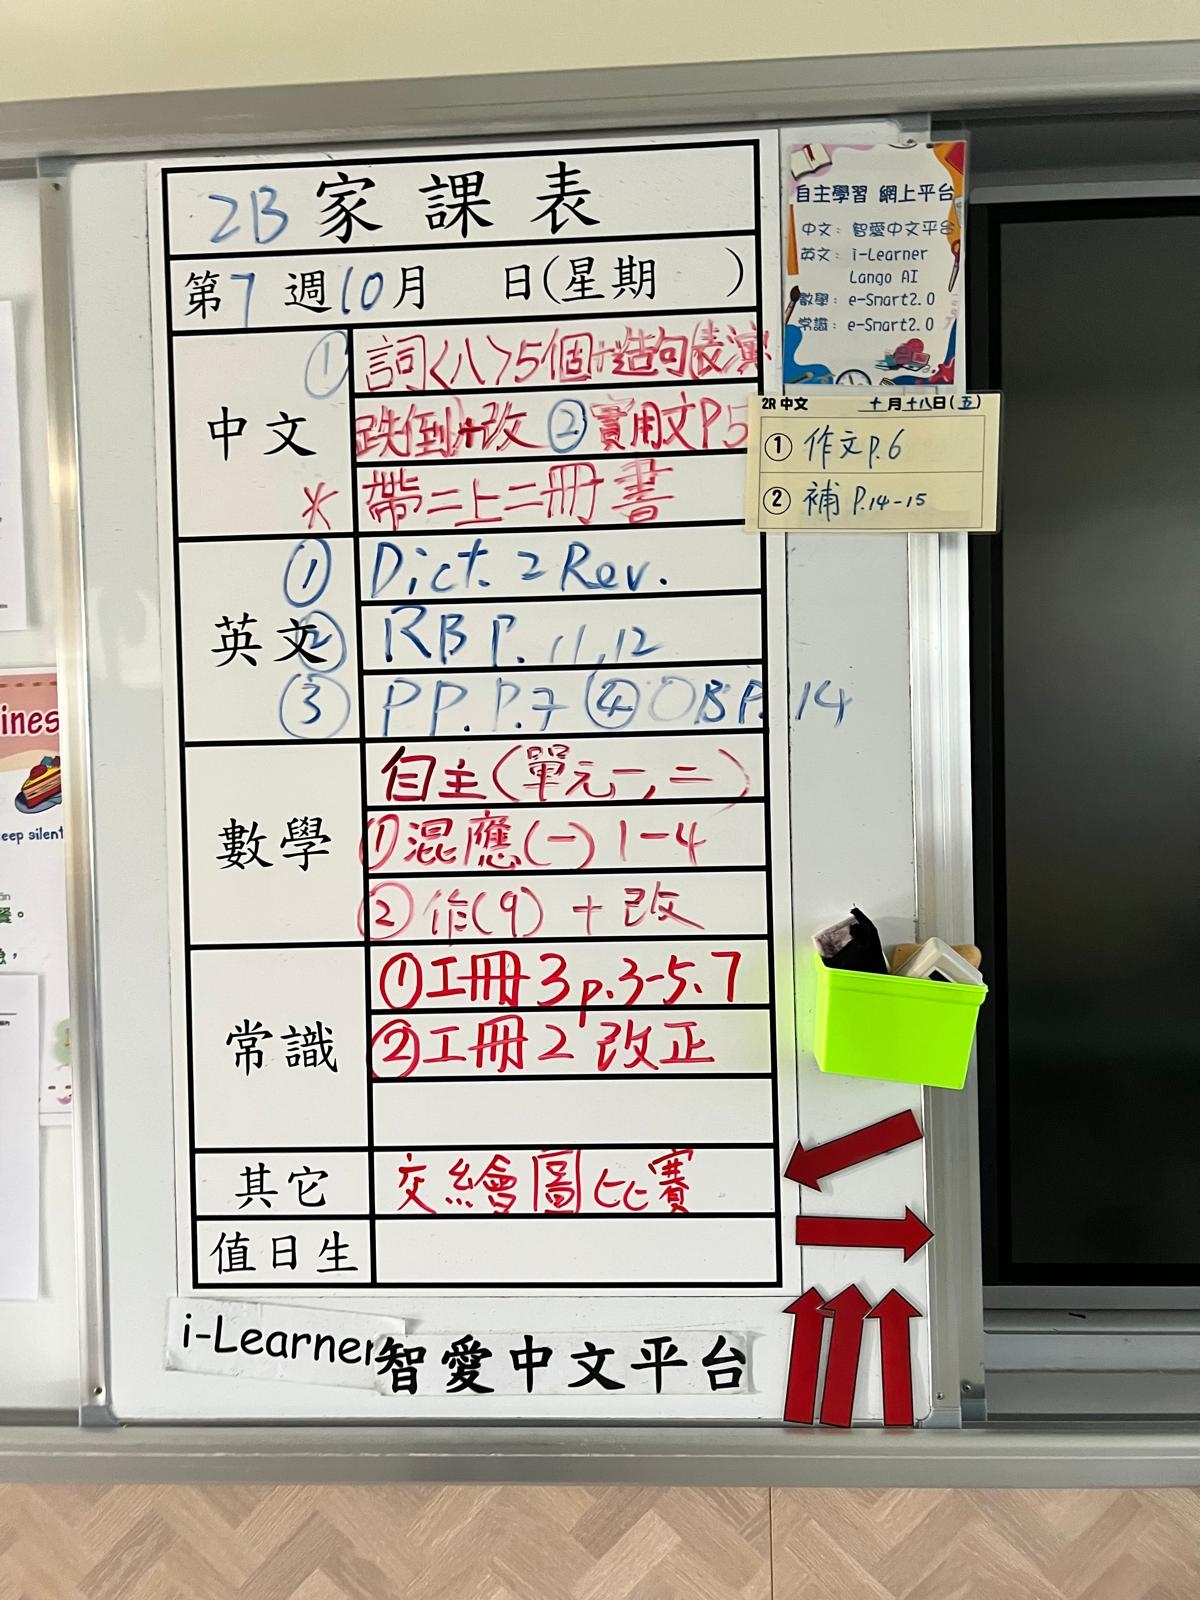 2B 家課表
第7週10月 日(星期 )
中文
① 詞<八>5個+造句(表演
跌倒)+改 ②實用文P5
* 帶二上二冊書
英文
① Dict. 2 Rev.
② RB P. 11,12
③ PP. P.7 ④ OB P. 14
數學
自主(單元一,二)
①混應(一) 1-4
②作(9) + 改
常識
①工冊3 p.3-5.7
②工冊2 改正
其它
交繪圖比賽
值日生
i-Learner
智愛中文平台
自主學習 網上平台
中文: 智愛中文平台
英文: i-Learner
Lango AI
數學: e-Smart2.0
常識: e-Smart2.0
中文 十月十八日(五)
① 作文p.6
② 補 P.14-15
ines
eep silent
餐。